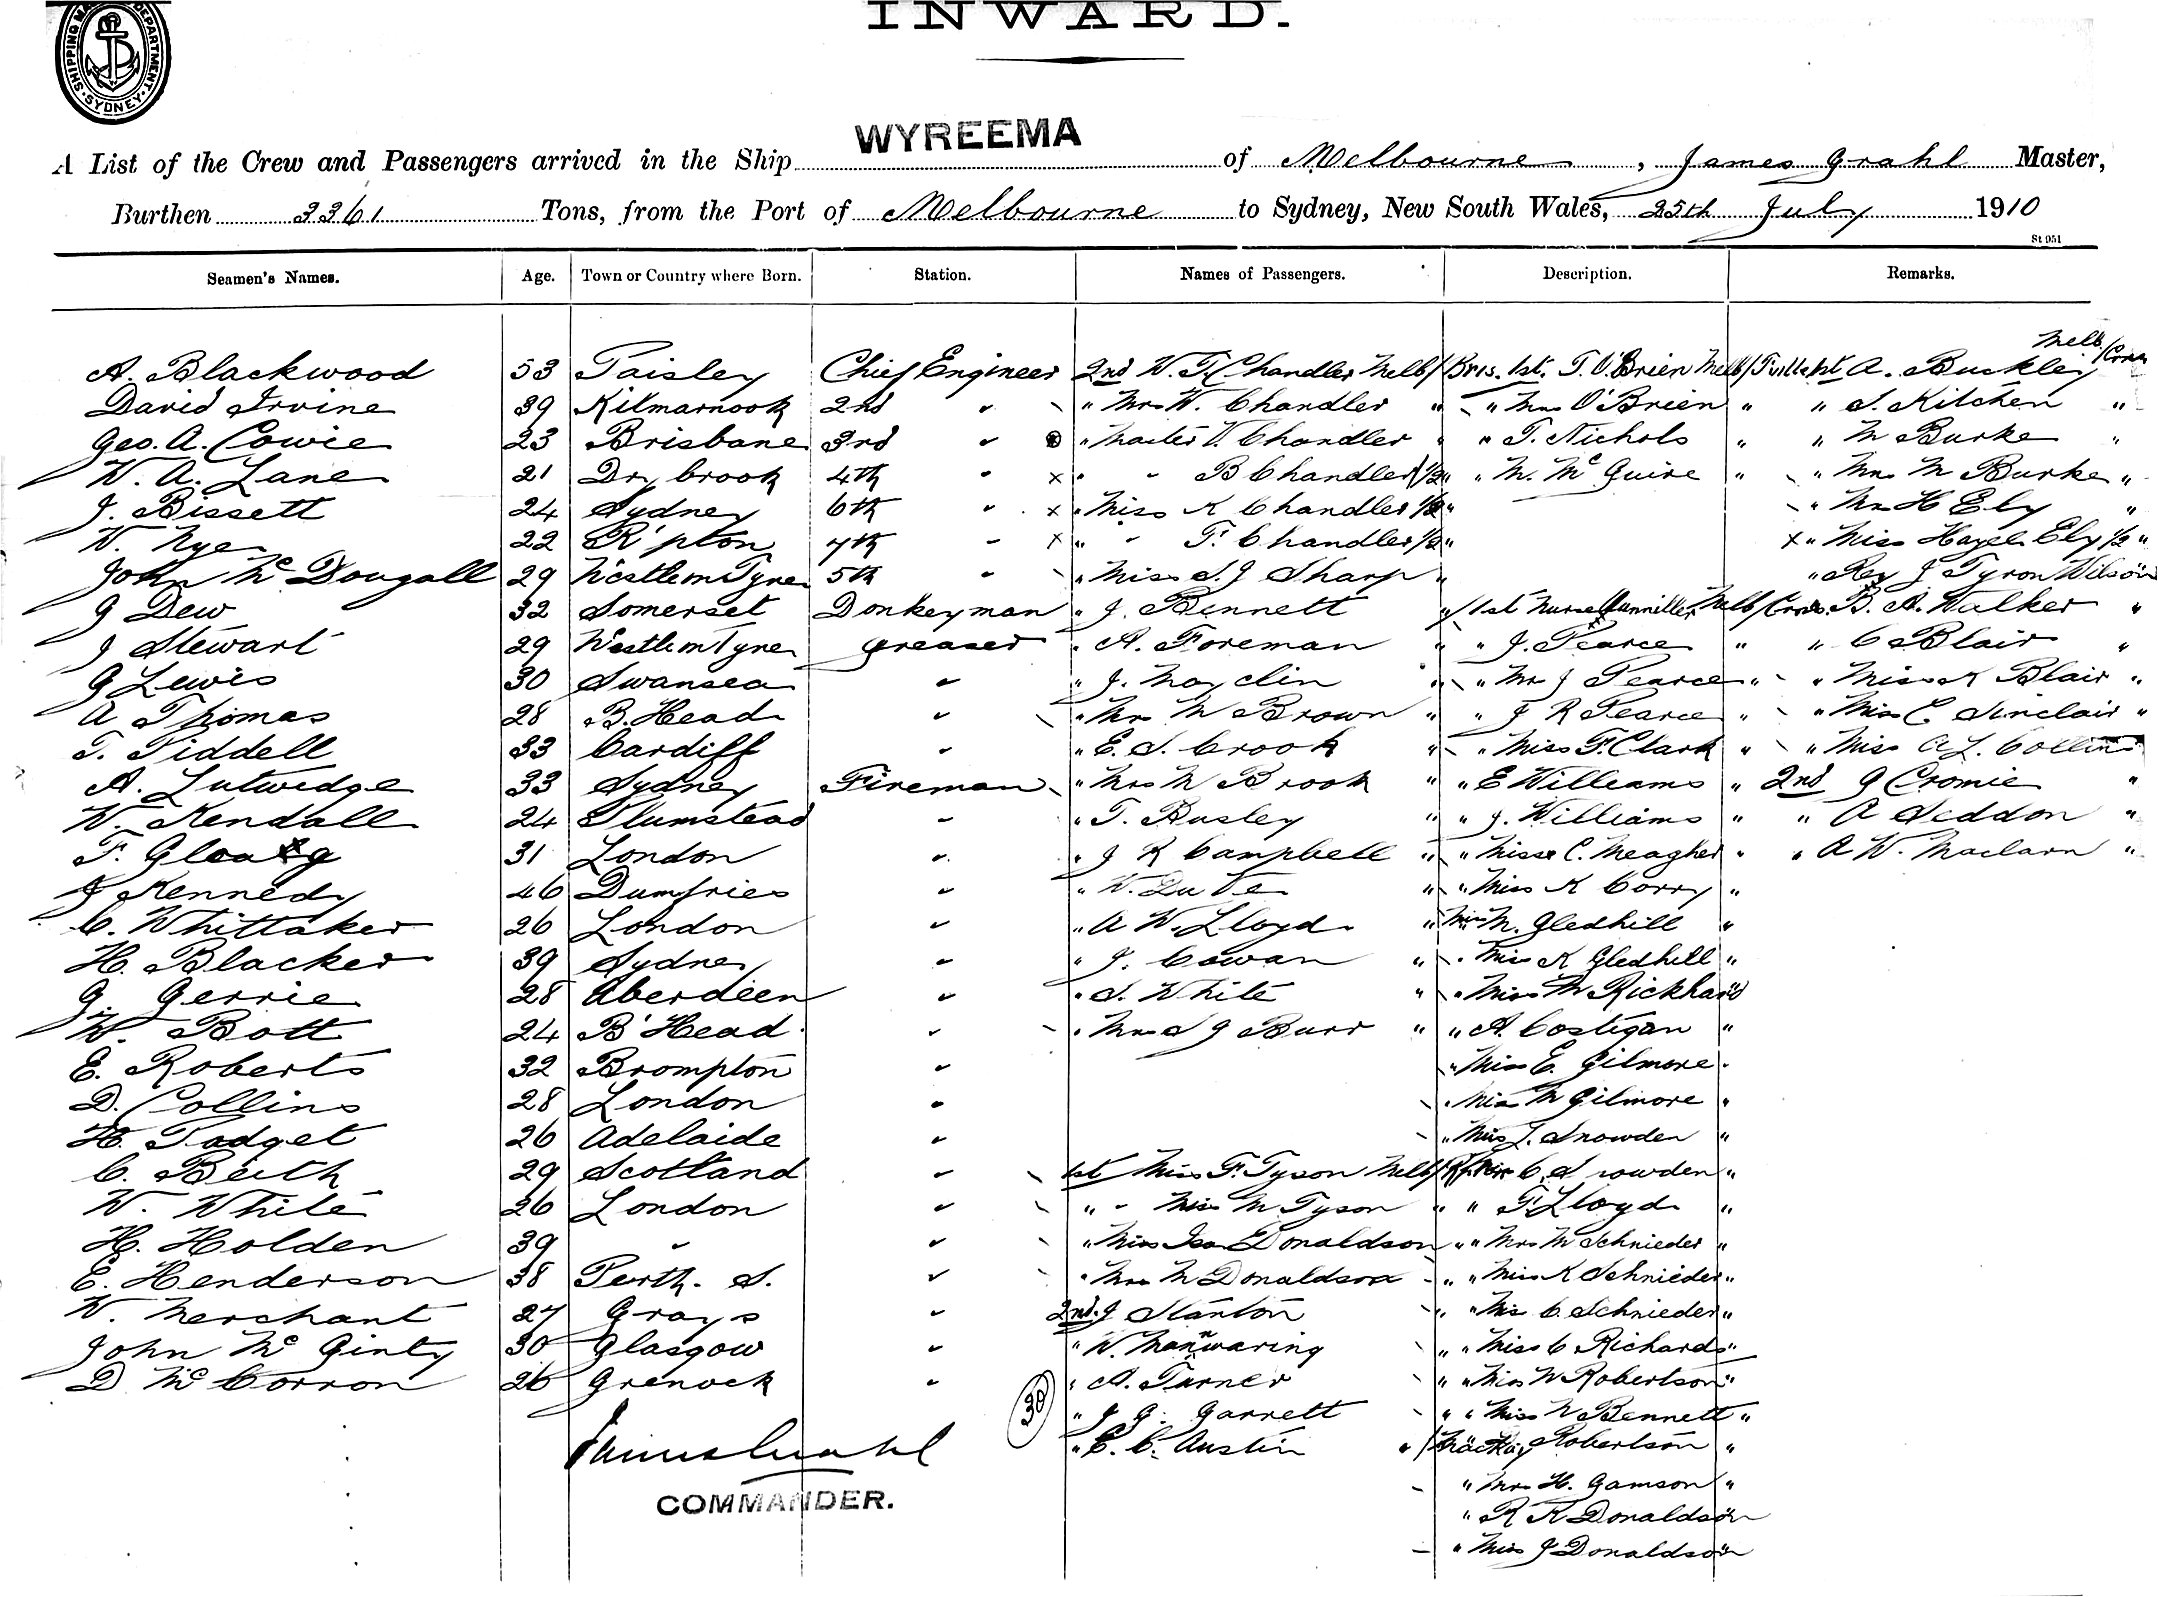 INWARD.
SHIPPING MA DEPARTMENT SYDNEY
WYREEMA
A List of the Crew and Passengers arrived in the Ship of Melbourne, James Grahl Master,
Burthen 3361 Tons, from the Port of Melbourne to Sydney, New South Wales, 25th July 1910
St 951
Seamen's Names. Age. Town or Country where Born. Station. Names of Passengers. Description. Remarks.
Melb/
A. Blackwood 53 Paisley Chief Engineer 2nd W. T. Chandler Melb/Bris. 1st. T. O'Brien Melb/ 1st A. Buckley
David Irvine 39 Kilmarnock 2nd " " Mrs W. Chandler " " Mrs O'Brien " " S. Kitchen "
Geo. A. Cowie 23 Brisbane 3rd " " Master V. Chandler " " T. Nichols " " M Burke "
W. A. Lane 21 Drybrook 4th " x " " B Chandler 1/2 " " M. McGuire " " Mrs M Burke "
J. Bissett 24 Sydney 6th " x " Miss K Chandler 1/2 " " Mrs H Ely "
W. Nye 22 R'pton 7th " x " " F. Chandler 1/2 " x " Miss Hazel Ely 1/2 "
John McDougall 29 N'castle on Tyne 5th " " Miss S. J Sharp " " Rev J Tyron Wilson
G Dew 32 Somerset Donkeyman " J. Bennett " 1st Nurse Melb/ B. A. Walker "
J Stewart 29 N'castle on Tyne Greaser " A. Foreman " " J. Pearce " " C Blair "
G Lewis 30 Swansea " " J. " " Mrs J Pearce " " Miss K Blair "
A Thomas 28 B. Head " " Mrs M Brown " " J R Pearce " " Miss C. Sinclair "
T. Piddell 33 Cardiff " " E. S. Crook " " Miss F. Clark " " Miss A L. Collins
A. Lutwedge 33 Sydney Fireman " Mrs M Brook " " E Williams " 2nd G Cromie "
W. Kendall 24 Plumstead " " T. Busley " " J. Williams " " A Seddon "
F. 31 London " " J K Campbell " " Miss C. Meagher " " A W. Maclarn "
J Kennedy 46 Dumfries " " W. Du Ve " " Miss K Corry "
C. Whittaker 26 London " " A W. Lloyd " Miss M. Gledhill "
H. Blacker 39 Sydney " " J. Cowan " " Miss K Gledhill "
G. Gerrie 28 Aberdeen " " S. White " " Miss M Rickhard
W. Bott 24 B'Head " " Mrs S J Burr " " A. Costigan "
E. Roberts 32 Brompton " " Miss E. Gilmore "
D. Collins 28 London " " Miss M Gilmore "
H. Padget 26 Adelaide " " Miss L. Snowden "
C. Beith 29 Scotland " 1st Miss F. Tyson Melb/ C. Snowden "
W. White 26 London " " " Miss M Tyson " " F. Lloyd "
H. Holden 39 " " " Miss Donaldson " " Mrs M Schnieder "
E. Henderson 38 Perth. S. " " Mrs M Donaldson " " Miss K Schnieder "
W. Merchant 27 Grays " 2nd. J Stanton " " Miss C. Schnieder "
John McGinty 30 Glasgow " " W. Mannwaring " " Miss C Richards "
D McCorron 26 Grenock " " A. Turner " " Miss W Robertson "
30 " J G. Garrett " " Miss W Bennett "
" C. C. Austin " /Mackay Robertson "
James Grahl
COMMANDER.
" Mrs H. Gamson "
" R K Donaldson
" Miss J Donaldson